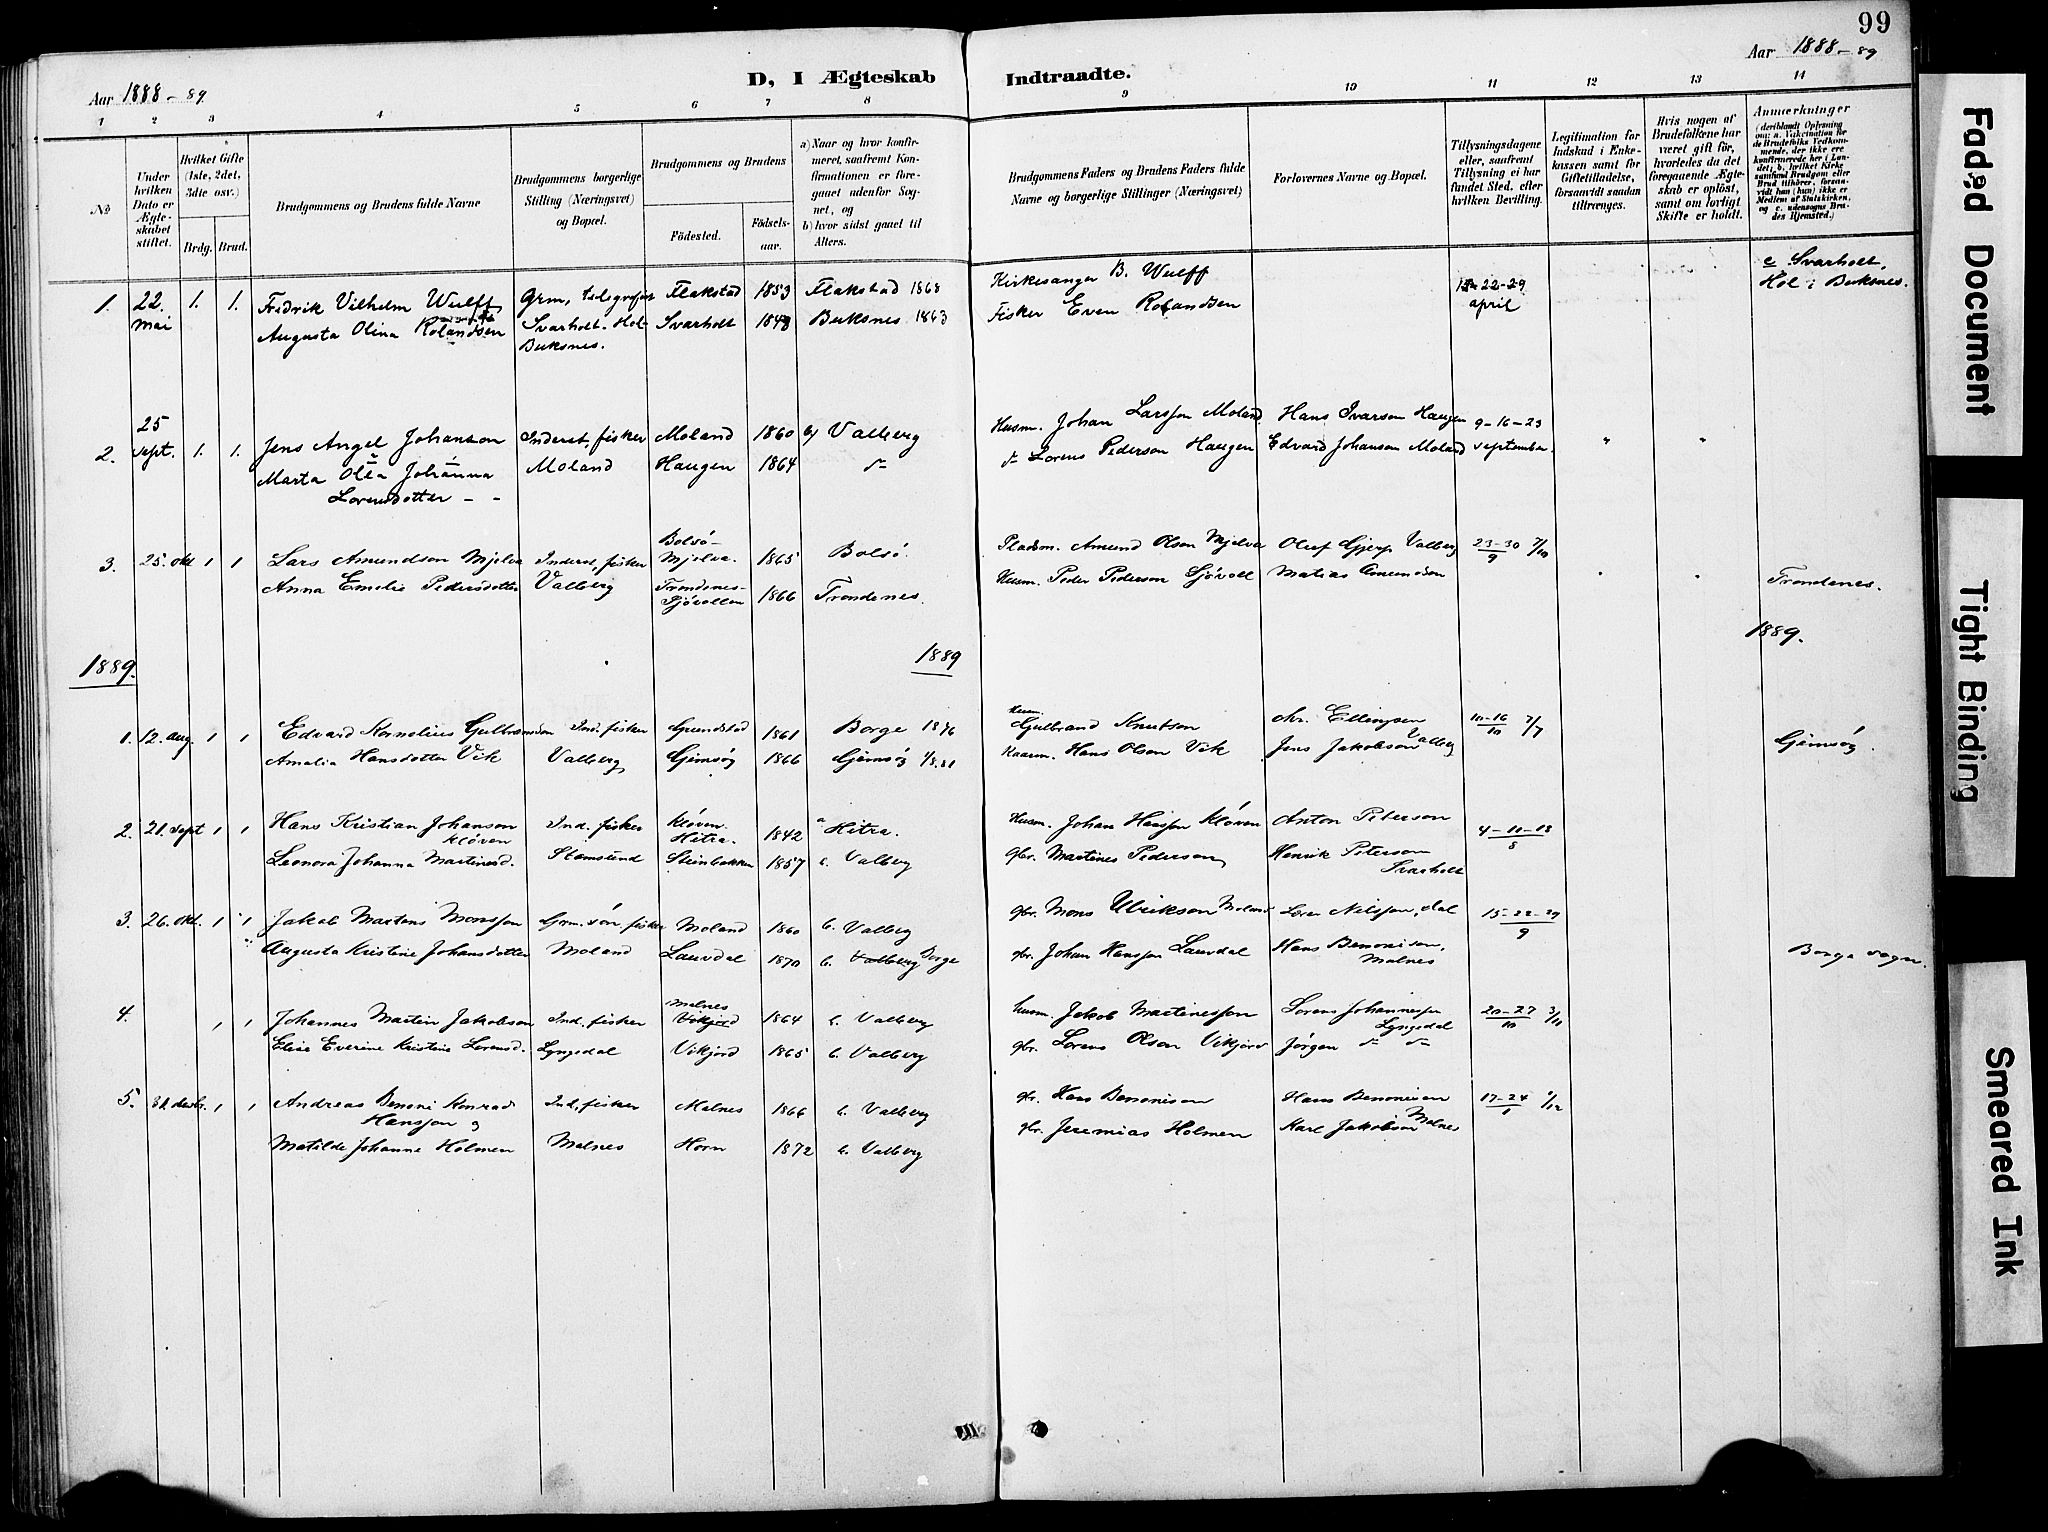 99
Aar 1888-89
D, I Ægteskab Indtraadte.
Aar 1888-89
1 2 3 4 5 6 7 8 9 10 11 12 13 14
No
Under hvilken Dato er Ægteskabet stiftet.
Hvilket Gifte (1ste, 2det, 3dte osv.)
Brdg. Brud.
Brudgommens og Brudens fulde Navne
Brudgommens borgerlige Stilling (Næringsvei) og Bopæl.
Brudgommens og Brudens
Födested. Födselsaar.
a) Naar og hvor konfirmeret, saafremt Konfirmationen er foregaaet udenfor Sognet, og
b) hvor sidst gaaet til Alters.
Brudgommens Faders og Brudens Faders fulde Navne og borgerlige Stillinger (Næringsvei)
Forlovernes Navne og Bopæl.
Tillysningsdagene eller, saafremt Tillysning ei har fundet Sted, efter hvilken Bevilling.
Legitimation for Indskud i Enkekassen samt for Giftetilladelse, forsaavidt saadan tiltrænges.
Hvis nogen af Brudefolkene har været gift för, hvorledes da det foregaaende Ægteskab er oplöst, samt om lovligt Skifte er holdt.
Anmærkninger
(deriblandt Oplysning om: a. Vakcination for de Brudefolks Vedkommende, der ikke ere konfirmerede her i Landet, b. hvilket Kirkesamfund Brudgom eller Brud tilhörer, forsaavidt han (hun) ikke er Medlem af Statskirken, og c. udensogns Brudes Hjemsted.)
1. 22. mai 1. 1. Fredrik Vilhelm Wulff Grm, Flakstad 1853 Flakstad 1868 Kirkesanger B. Wulff 22-29 april c Svarholt, Hol i Buksnes.
Augusta Olina Rolandsen Svarholt. Hol Buksnes. Svarholt 1848 Buksnes 1863 Fisker Even Rolandsen
2. 25 sept. 1. 1. Jens Angel Johanson Inderst, fisker Moland 1860 b) Valberg Husm. Johan Larsson Moland Hans Ivarson Haugen 9-16-23 september. " "
Marta Olea Johanna Lorensdotter - - Moland Haugen 1864 Lorens Pederson Haugen Edvard Johanson Moland
3. 25. okt 1 1 Lars Amundson Mjelva Inderst, fisker Bolsö- Mjelva. 1865 Bolsö. Pladsm. Amund Olson Mjelva Oluf Gjerp Valberg 23-30/9 7/10 " "
Anna Emelie Pedersdotter Valberg Trondenes- 1866 Trondenes. Husm. Peder Pederson Sjövoll Matias Amundson Trondenes.
1889. 1889 1889.
1. 12. aug. 1 1 Edvard Kornelius Gulbrandson Ind. fisker Grundstad 1861 Borge 1876 Husm. Gulbrand Knutson Chr. Ellingsen 7/7
Amalia Hansdotter Vik Valberg Gimsöy 1866 Gimsöy Hans Olson Vik Jens Jakobson Valberg Gimsöy.
2. 21. sept 1 1 Hans Kristian Johanson Kløven Ind. fisker Kløven. Hitra. 1842 a Hitra. Husm. Johan Hansson Kløven Anton Peterson
Leonora Johanna Martinesd. Stamsund Steinbakken 1857 b. Valberg gbr. Martines Pederson Henrik Peterson Svarholt
3. 26. okt. 1 1 Jakob Martens Monsson Grm. sön, fisker Moland 1860 b. Valberg gbr. Mons Ulrikson Moland Loren Nilsson, dal 15-22-29/9
Augusta Kristine Johansdotter Moland Lauvdal 1870 b. Valberg Borge gbr. Johan Hansson Lauvdal Hans Benonison, Malnes Borge sogn.
4. 1 1 Johannes Martin Jakobson Ind. fisker Malnes Vikjord 1864 b. Valberg husm. Jakob Martinesson Lorens Johannesson Lyngedal 20-27/10 3/11
Elise Everine Kristine Lorensd. Lyngedal Vikjord 1865 b. Valberg gbr. Lorens Olson Vikjord Jörgen
5. 31. desbr. 1 1 Andreas Benoni Konrad Hansson og Ind. fisker Malnes 1866 b. Valberg gbr. Hans Benonison Hans Benonison 17-24
Matilde Johanne Holmen Malnes Horn 1872 b. Valberg gbr. Jeremias Holmen Karl Jakobson Malnes
Faded Document
Tight Binding
Smeared Ink